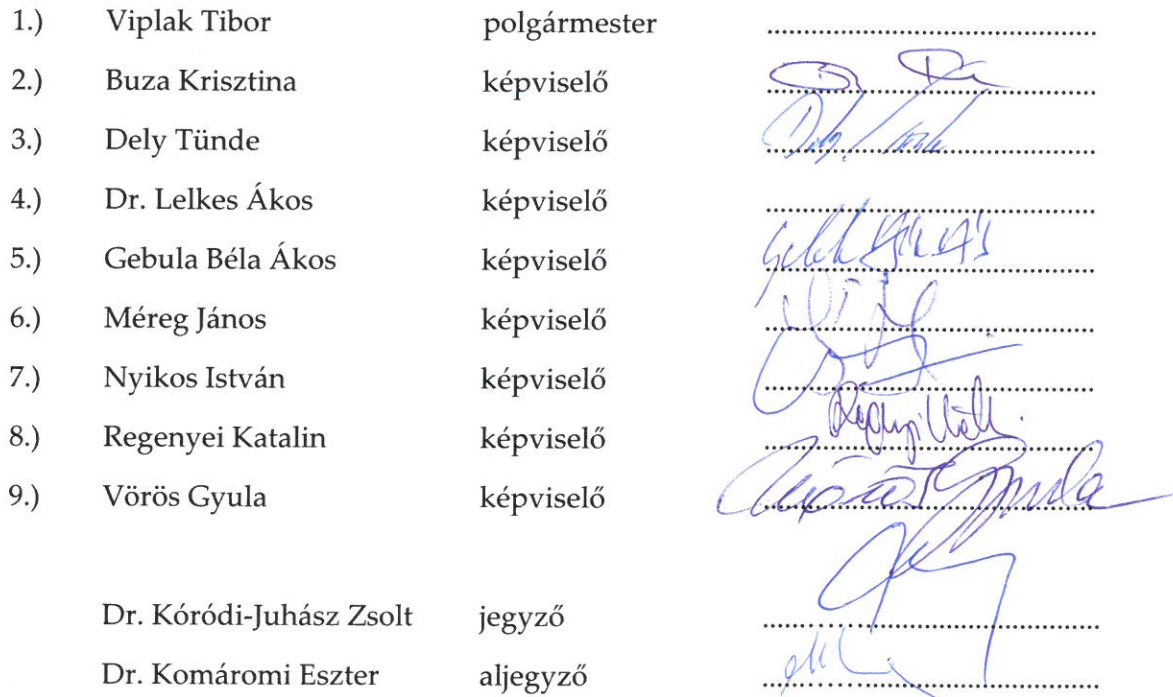 1.) Viplak Tibor polgármester ........................................
2.) Buza Krisztina képviselő ........................................
3.) Dely Tünde képviselő ........................................
4.) Dr. Lelkes Ákos képviselő ........................................
5.) Gebula Béla Ákos képviselő ........................................
6.) Méreg János képviselő ........................................
7.) Nyikos István képviselő ........................................
8.) Regenyei Katalin képviselő ........................................
9.) Vörös Gyula képviselő ........................................
Vörös Gyula
Dr. Kóródi-Juhász Zsolt jegyző ........................................
Dr. Komáromi Eszter aljegyző ........................................